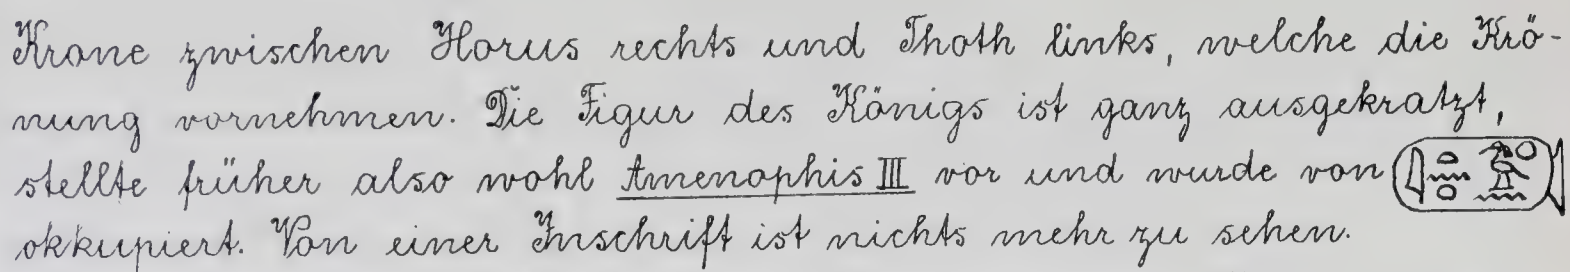 Krone zwischen Horus rechts und Thoth links, welche die Krö-
nung vornehmen. Die Figur des Königs ist ganz ausgekratzt,
stellte früher also wohl Amenophis III vor und wurde von
okkupiert. Von einer Inschrift ist nichts mehr zu sehen.